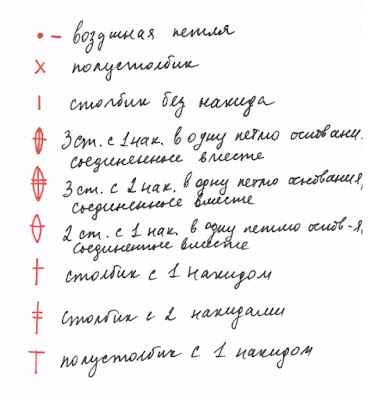 • – воздушная петля
x полустолбик
| столбик без накида
3 ст. с 1 нак. в одну петлю основани.
соединенные вместе
3 ст. с 2 нак. в одну петлю основания,
соединенные вместе
2 ст. с 1 нак. в одну петлю основ-я,
соединенные вместе
столбик с 1 накидом
столбик с 2 накидами
полустолбик с 1 накидом